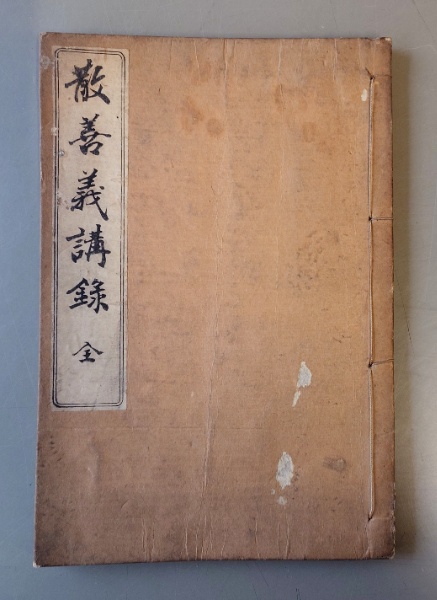 散善義講錄 全